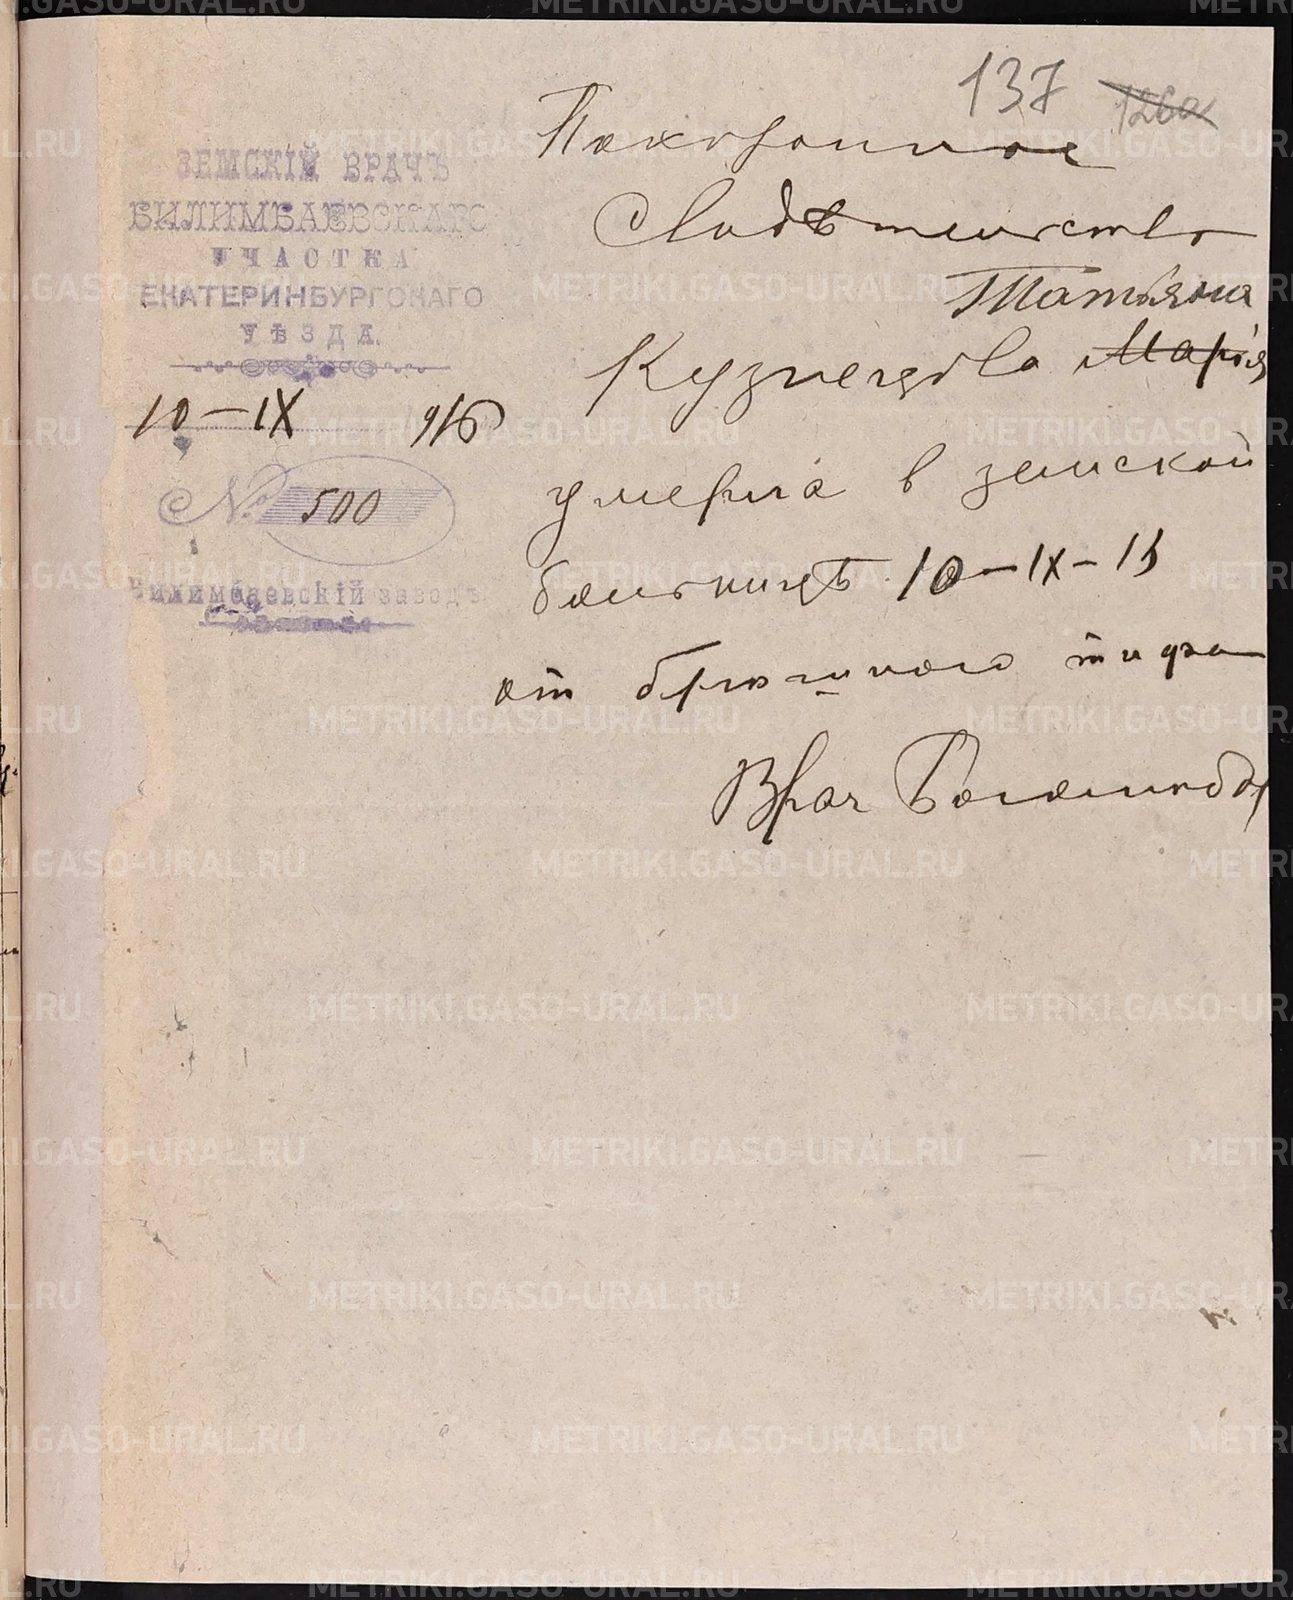 137 126а
Похоронное
Свидѣтельство
Татьяна
Кузнецова Марія
умерла в земской
больницѣ 10-IX-15
от брюшного тифа
Врач
ЗЕМСКІЙ ВРАЧЪ
БИЛИМБАЕВСКАГО
УЧАСТКА
ЕКАТЕРИНБУРГСКАГО
УѢЗДА.
10-IX 916
№ 500
Билимбаевскій заводъ
METRIKI.GASO-URAL.RU